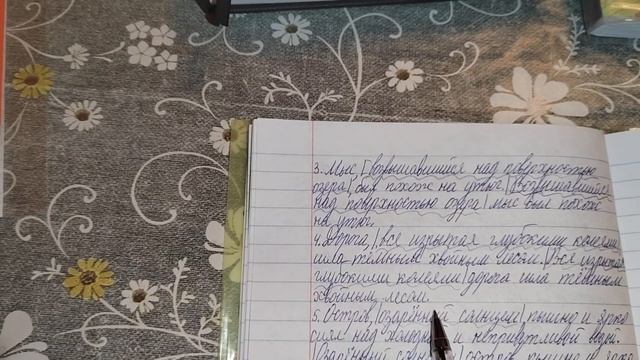 3. Мыс | возвышавшийся над поверхностью
озера | был похож на утюг. | Возвышавшийся
над поверхностью озера | мыс был похож
на утюг.
4. Дорога, | вся изрытая глубокими колеями
шла тёмным хвойным лесом. | Вся изрытая
глубокими колеями | дорога шла тёмным
хвойным лесом.
5. Остров, | озарённый солнцем | пышно и ярко
сиял над холодной и неприветливой водой.
Озарённый остров пышно и